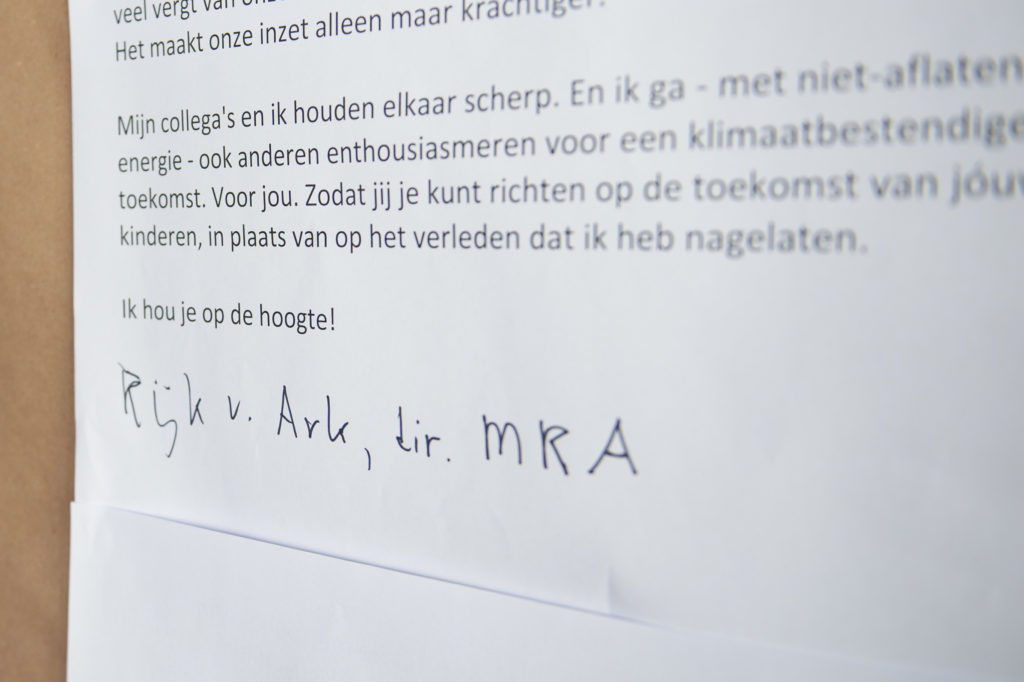 veel vergt van onz
Het maakt onze inzet alleen maar krachtiger.
Mijn collega's en ik houden elkaar scherp. En ik ga - met niet-aflaten
energie - ook anderen enthousiasmeren voor een klimaatbestendige
toekomst. Voor jou. Zodat jij je kunt richten op de toekomst van jóuw
kinderen, in plaats van op het verleden dat ik heb nagelaten.
Ik hou je op de hoogte!
Rijk v. Ark, dir. MRA